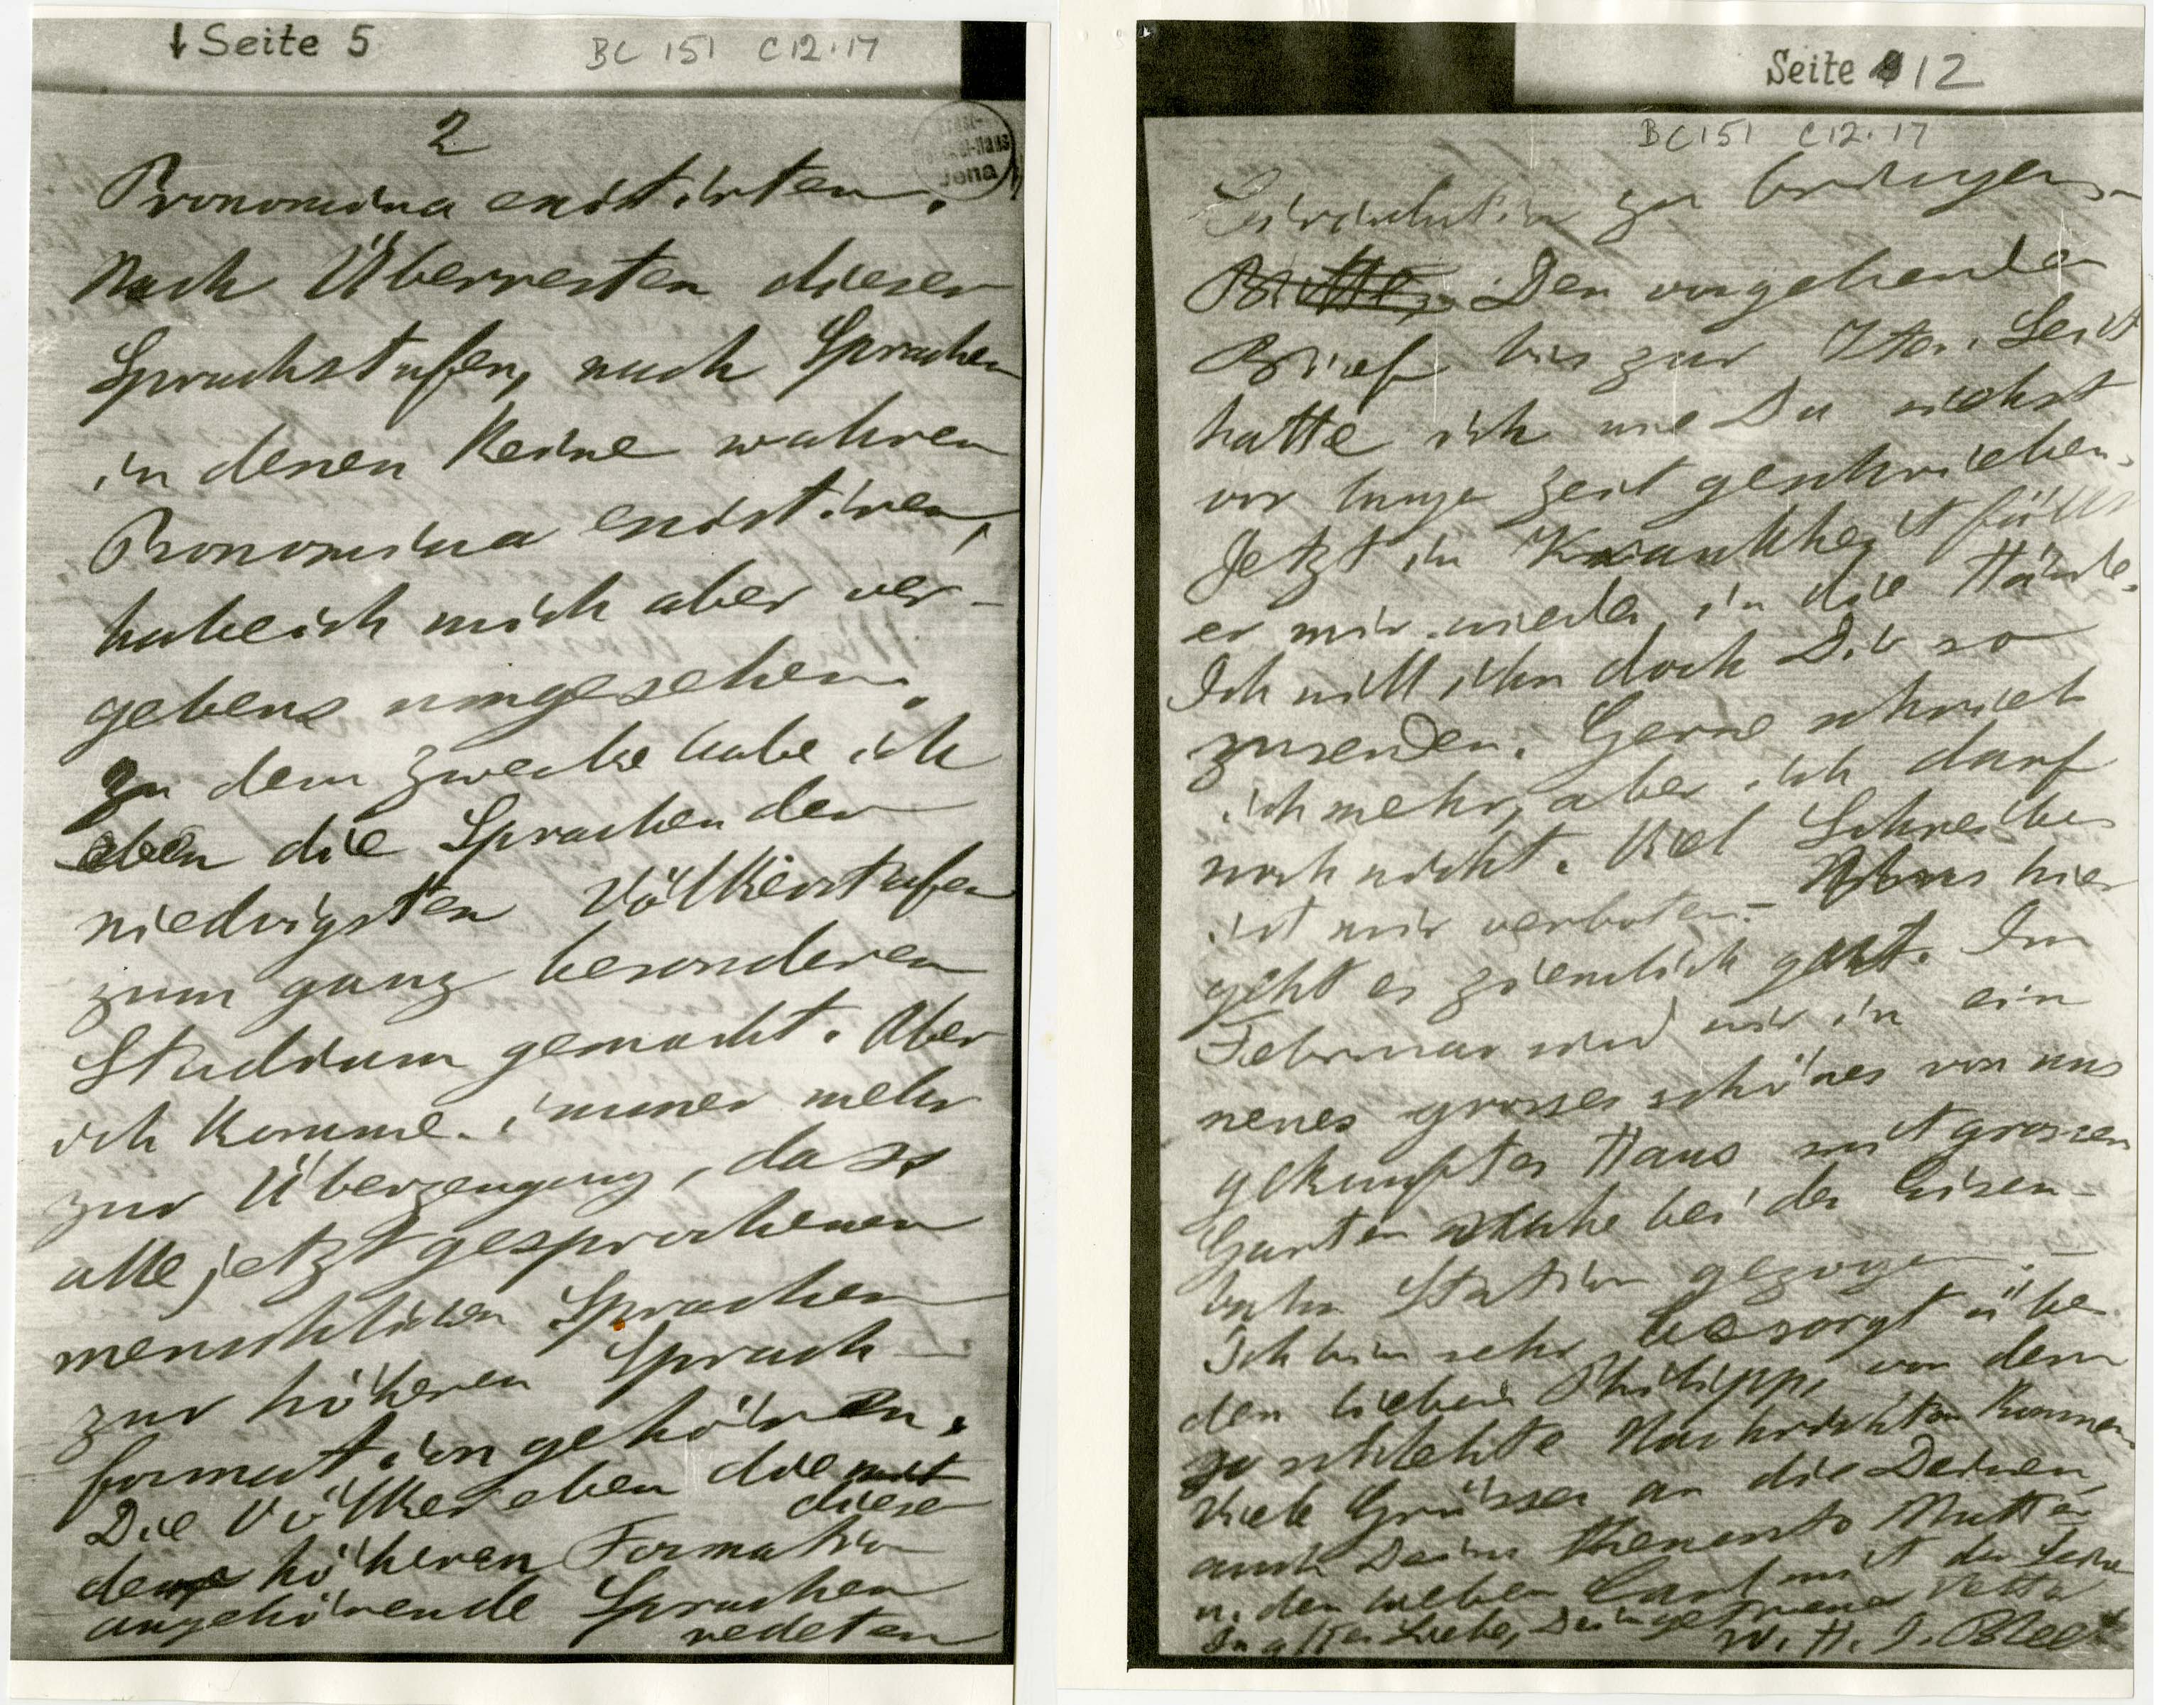 ↓ Seite 5
BC 151 C12.17
2
Jena
Pronomina existirten.
Nach Überresten dieser
Sprachstufen, nach Sprachen
in denen keine wahren
Pronomina existiren,
habe ich mich aber ver-
gebens umgesehen.
Zu dem Zwecke habe ich
eben die Sprachen der
niedrigsten Völkerstufen
zum ganz besonderen
Studium gemacht. Aber
ich komme immer mehr
zur Überzeugung, dass
alle jetzt gesprochenen
menschlichen Sprachen
zur höheren Sprach-
formation gehören.
Die Völker eben die mit
dieser
höheren Formation
angehörende Sprachen
redeten
Seite 12
BC 151 C12.17
zu bringen.-
Bitte, Den vorgehenden
Brief bis zur 7ten. Seit
hatte ich wie Du siehst
vor langer Zeit geschrieben.
Jetzt in Krankheit fällt
er mir wieder in die Hände.
Ich will ihn doch Dir so
zusenden. Gerne schrieb
ich mehr, aber ich darf
noch nicht. Viel Schreiben
ist mir verboten.- hier
geht es ziemlich gut. Im
Februar sind wir in ein
neues grosses schönes von uns
gekauftes Haus mit grossen
Garten nahe bei der Eisen-
bahn Station gezogen. -
Ich bin sehr besorgt über
den lieben Philipp, von dem
so schlechte Nachrichten kommen
Viele Grüsse an die Deinen,
auch Deine Mutter
u. den lieben Carl mit der
In alter Liebe, Dein getreuer Vetter
W. H. I. Bleek